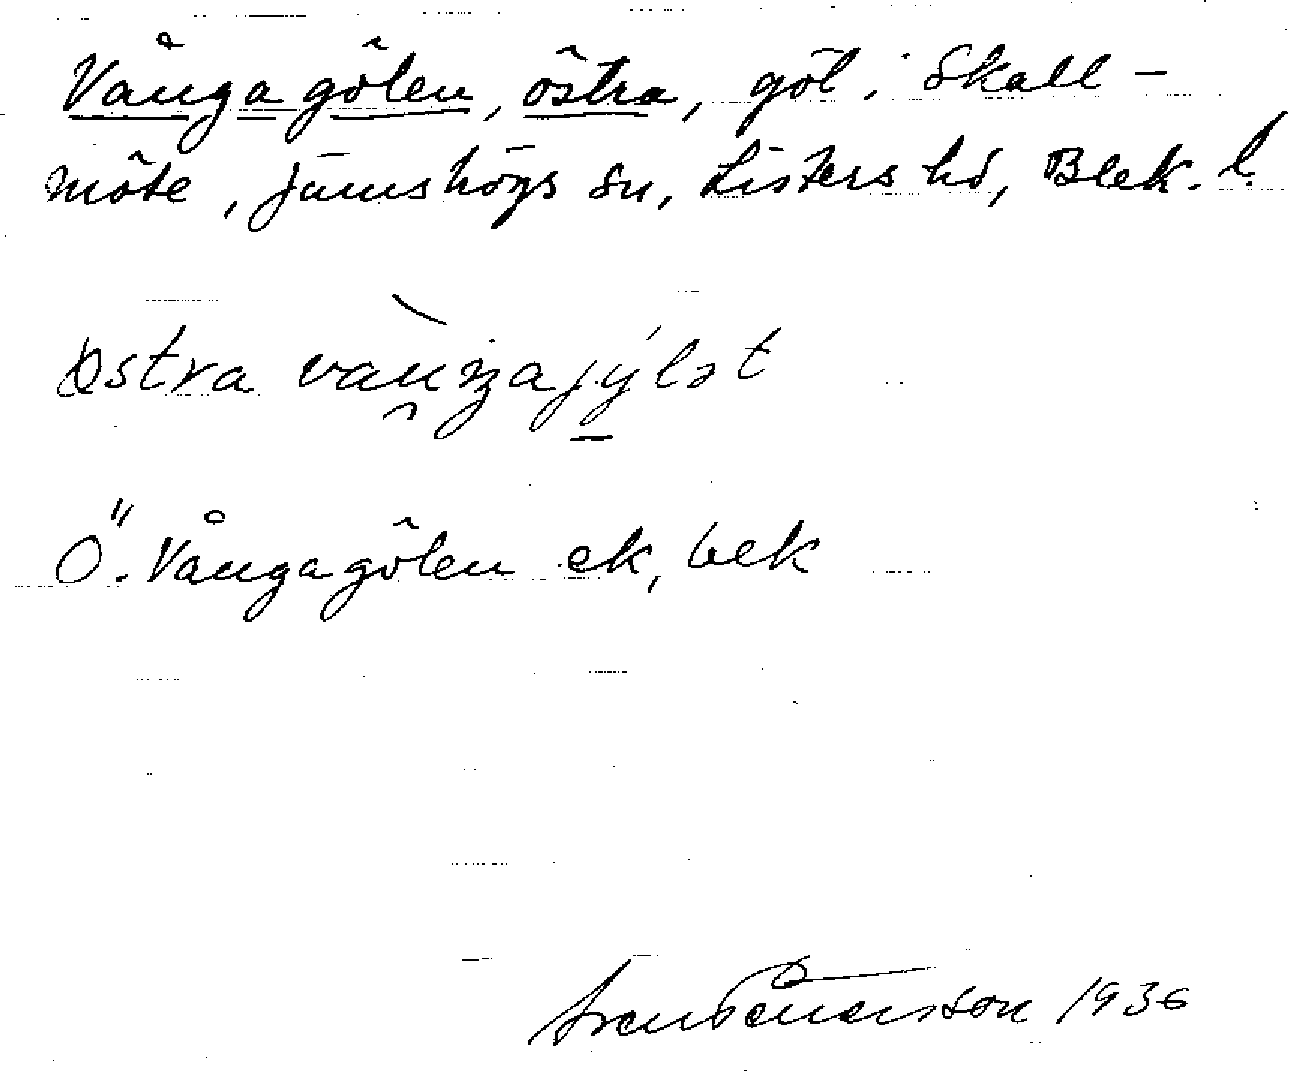 Vångagölen, östra, göl i Skall-
möte, Jämshögs sn, Listers hd, Blek. l.
Ö. Vångagölen ek, bek
1936